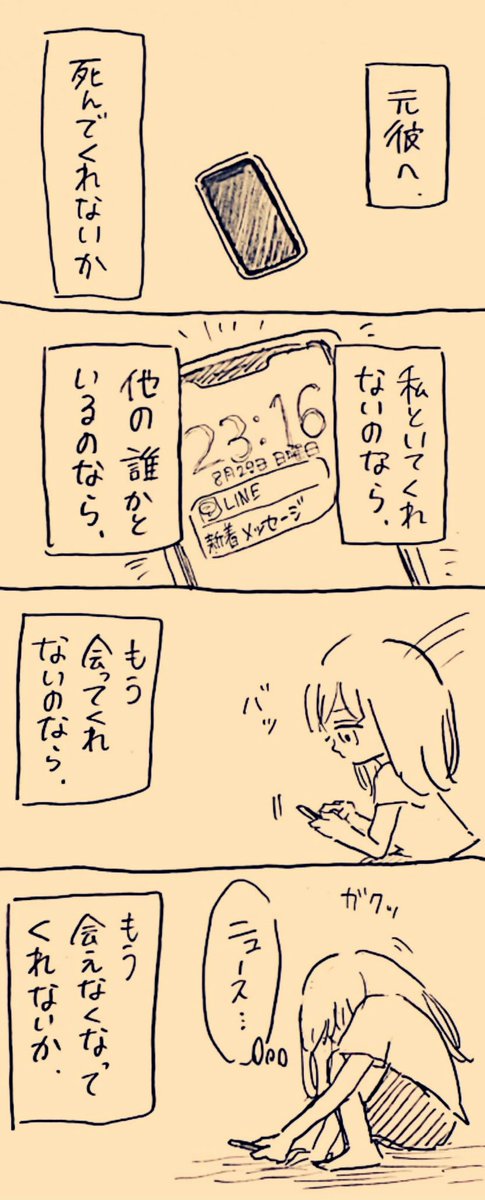 元彼へ.
死んでくれないか
私といてくれ
ないのなら.
23:16
8月29日 日曜日
LINE
新着メッセージ
他の誰かと
いるのなら.
バッ
もう
会ってくれ
ないのなら.
ガクッ
ニュース…
もう
会えなくなって
くれないか.